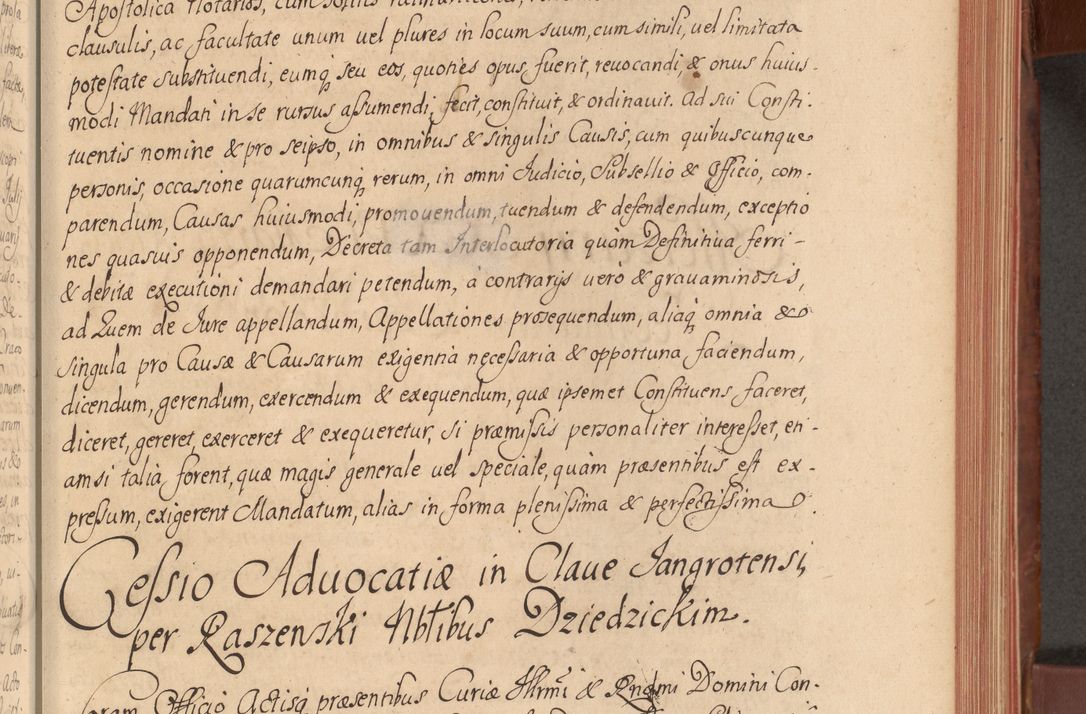 Apostolica Notarios, cum
clausulis, ac facultate unum vel plures in locum suum, cum simili, vel limitata
potestate substituendi, eumq̃ seu eos, quoties opus fuerit, revocandi, & onus huius-
modi Mandati in se rursus assumendi, fecit, constituit, & ordinavit. Ad sui Consti-
tuentis nomine & pro seipso, in omnibus & singulis Causis, cum quibuscunque
personis, occasione quarumcunq̃ rerum, in omni Iudicio, Subsellio & Officio, com-
parendum, Causas huiusmodi, promovendum, tuendum & defendendum, exceptio
nes quasvis opponendum, Decreta tam Interlocutoria quàm Definitiva, ferri-
& debitæ executioni demandari petendum, à contrarijs verò & gravaminosis,
ad Quem de Iure appellandum, Appellationes prosequendum, aliaq̃ omnia &
singula pro Causæ & Causarum exigentia necessaria & opportuna, faciendum,
dicendum, gerendum, exercendum & exequendum, quæ ipsemet Constituens faceret,
diceret, gereret, exerceret & exequeretur, si præmissis personaliter interesset, eti-
amsi talia forent, quæ magis generale vel speciale, quàm præsentibus est ex-
pressum, exigerent Mandatum, alias in forma plenissima & perfectissima.
Cessio Advocatiæ in Clave Jangrotensi,
per Raszenski Nbtibus Dziedzickim.
Coram Officio Actisq̃ præsentibus Curiæ Illrmi & Rndmi Domini Con-